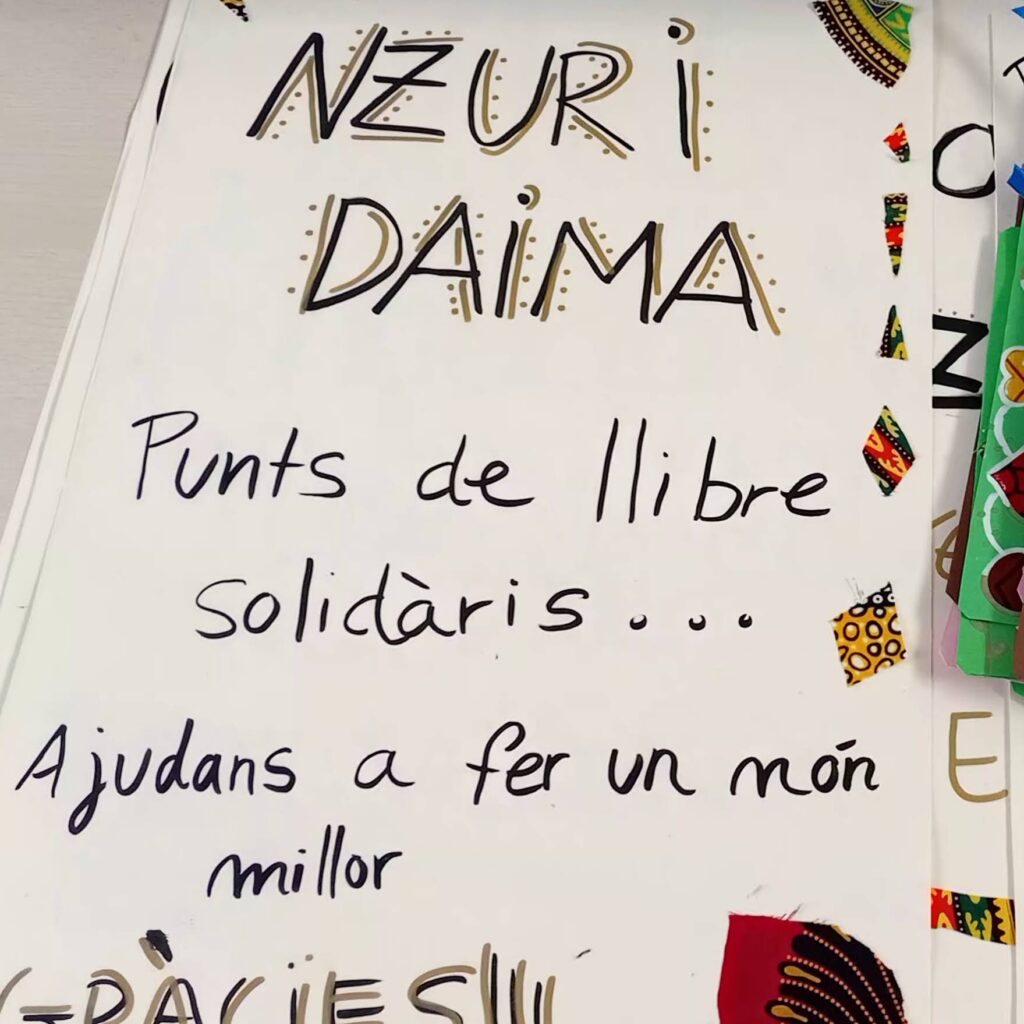 NZURI
DAIMA
Punts de llibre
solidàris...
Ajudans a fer un món
millor
GRÀCIES!!!